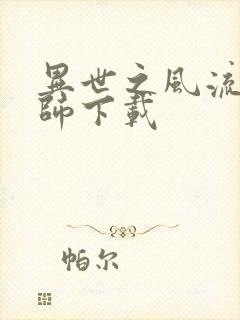 異世之風流
師下載
帕尔